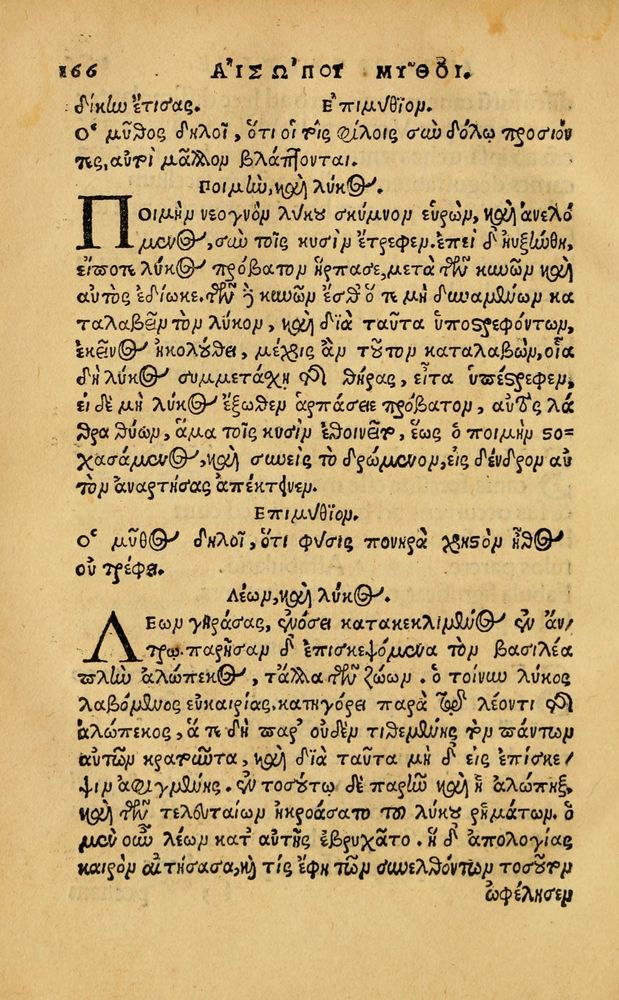 166 ΑἸΣΩ͂ΠΟΥ ΜΥ͂ΘΟΙ.
δίκην ἔτισας. Ἐπιμύθιον.
Ὁ μῦθος δηλοῖ, ὅτι οἱ τοῖς φίλοις σὺν δόλῳ προσιόν
τες, αὐτοὶ μᾶλλον βλάπτονται.
Ποιμὴν, καὶ λύκος.
Ποιμὴν νεογνὸν λύκου σκύμνον εὑρὼν, καὶ ἀνελό
μενος, σὺν τοῖς κυσὶν ἔτρεφεν. ἐπεὶ δ' ηὐξήθη,
εἴποτε λύκος πρόβατον ἥρπασε, μετὰ τῶν κυνῶν καὶ
αὐτὸς ἐδίωκε. τῶν δὲ κυνῶν ἔσθ' ὅτε μὴ δυναμένων κα
ταλαβεῖν τὸν λύκον, καὶ διὰ ταῦτα ὑποστρεφόντων,
ἐκεῖνος ἠκολούθει, μέχρις ἂν τοῦτον καταλαβὼν, οἷα
δὴ λύκος συμμετάσχῃ τῆς θήρας, εἶτα ὑπέστρεφεν,
εἰ δὲ μὴ λύκος ἔξωθεν ἁρπάσειε πρόβατον, αὐτὸς λά
θρα θύων, ἅμα τοῖς κυσὶν ἐθοινεῖτο, ἕως ὁ ποιμὴν στο=
χασάμενος, καὶ συνεὶς τὸ δρώμενον, εἰς δένδρον αὐ
τὸν ἀναρτήσας ἀπέκτεινεν.
Ἐπιμύθιον.
Ὁ μῦθος δηλοῖ, ὅτι φύσις πονηρὰ χρηστὸν ἦθος
οὐ τρέφει.
Λέων, καὶ λύκος.
Λέων γηράσας, ἐνόσει κατακεκλιμένος ἐν ἄν/
τρῳ. παρῆσαν δ' ἐπισκεψόμενα τὸν βασιλέα
πλὴν ἀλώπεκος, τἄλλα τῶν ζώων. ὁ τοίνυν λύκος
λαβόμενος εὐκαιρίας, κατηγόρει παρὰ τῷ λέοντι τῆς
ἀλώπεκος, ἅτε δὴ παρ' οὐδὲν τιθεμένης τὸν πάντων
αὐτῶν κρατοῦντα, καὶ διὰ ταῦτα μὴ δ' εἰς ἐπίσκε/
ψιν ἀφιγμένης. ἐν τοσούτῳ δὲ παρῆν καὶ ἡ ἀλώπηξ,
καὶ τῶν τελευταίων ἠκροάσατο τοῦ λύκου ῥημάτων. ὁ
μὲν οὖν λέων κατ' αὐτῆς ἐβρυχᾶτο. ἡ δ' ἀπολογίας
καιρὸν αἰτήσασα, καὶ τίς ἔφη τῶν συνελθόντων τοσοῦτον
ὠφέλησεν